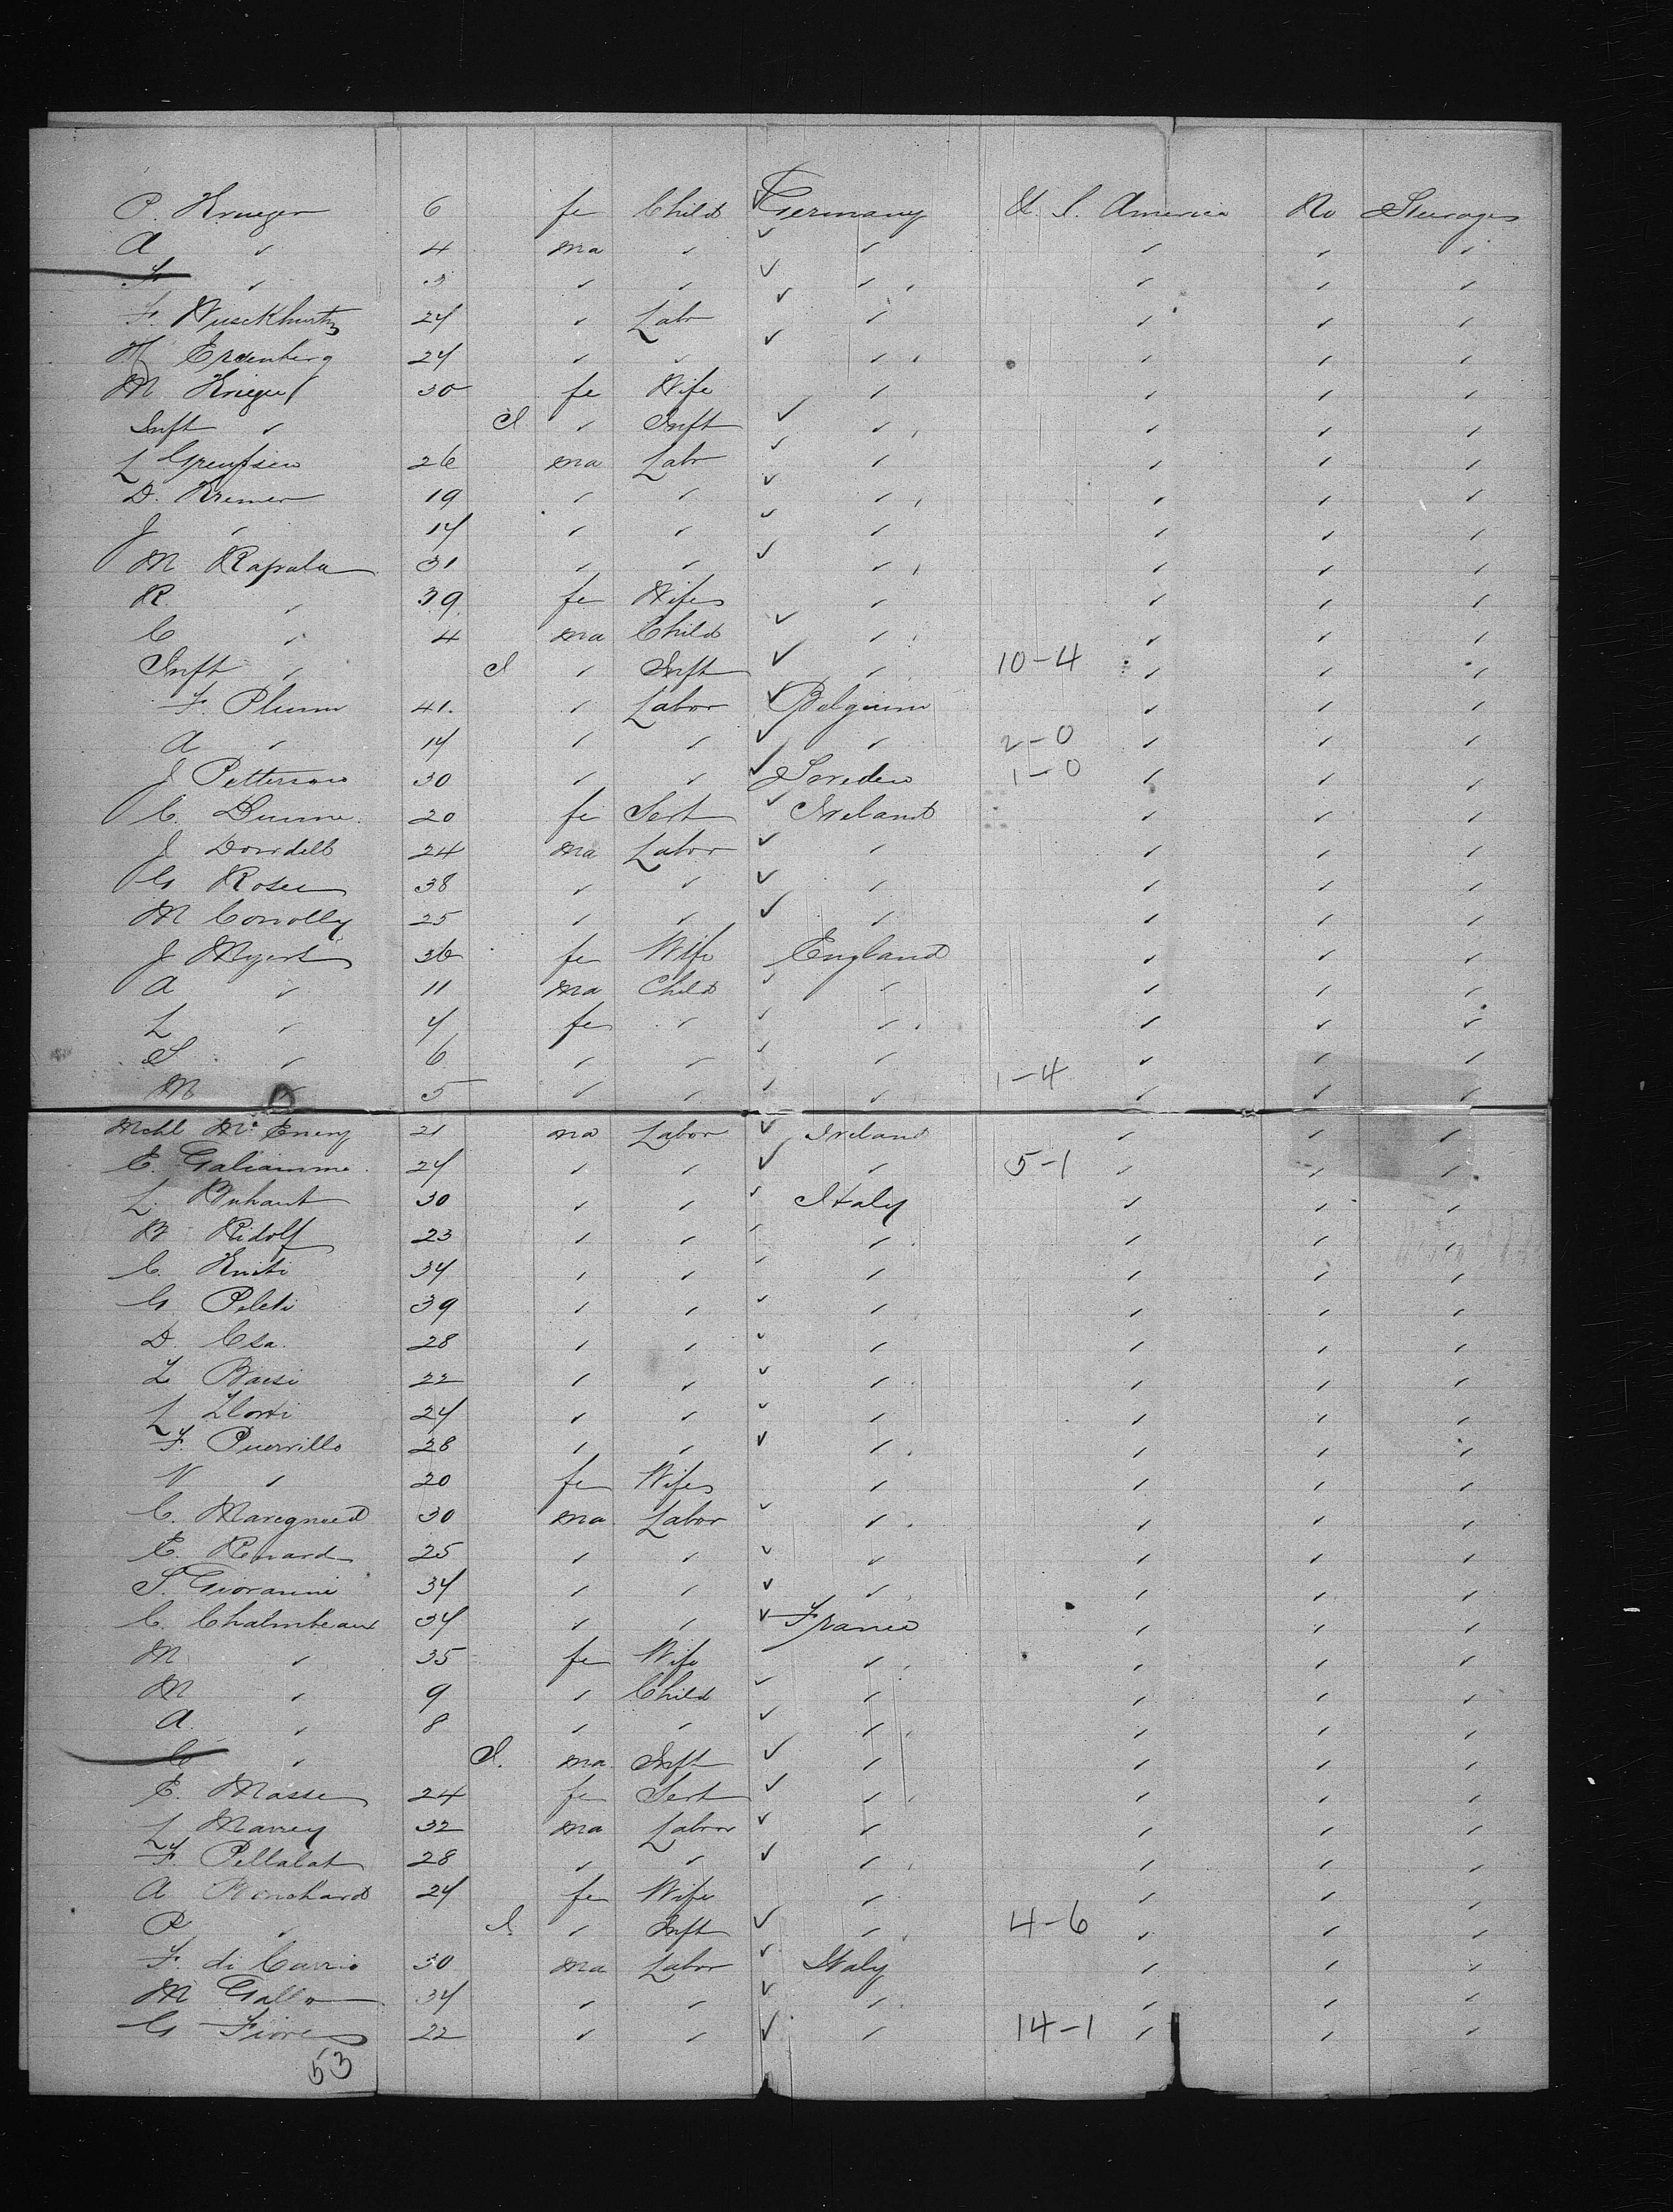 P. Krueger 6 fe Child Germany U. S. America No Steerages
A " 4 ma " " " " "
F " 3 " " " " " "
F. 24 " Labr " " " "
H Erdenberg 24 " " " " " "
M Krieger 30 fe Wife " " " "
Inft " I " Inft " " " "
L 26 ma Labr " " " "
D. Kremer 19 " " " " " "
J " 14 " " " " " "
M Rapala 31 " " " " " "
R. " 39 fe Wife " " " "
C " 4 ma Child " " " "
Inft " I " Inft " 10-4 " " "
F. Plumm 41. " Labor Belgium " " "
A " 14 " " " 2-0 " " "
J Petterson 30 " " Sweden 1-0 " " "
C. Dunne. 20 fe Sert Ireland " " "
J Dowdell 24 ma Labor " " " "
G Rosee 38 " " " " " "
M Conolly 25 " " " " " "
J Myers 36 fe Wife England " " "
A " 11 ma Child " " " "
L " 7 fe " " " " "
S " 6 " " " " " "
M " 5 " " " 1-4 " " "
Mchl Mc Eneny 21 ma Labor Ireland " " "
E. Galiamme. 24 " " " 5-1 " " "
L. 30 " " Italy " " "
B Ridolf 23 " " " " " "
C. 34 " " " " " "
G Peleti 39 " " " " " "
D. Csa. 28 " " " " " "
Z Baisi 22 " " " " " "
L 24 " " " " " "
F. Puerrillo 28 " " " " " "
V " 20 fe Wife " " " "
C. 30 ma Labor " " " "
E. Renard 25 " " " " " "
S. Giovanni 34 " " " " " "
C. Chalmbeaux 34 " " France " " "
M " 35 fe Wife " " " "
M " 9 " Child " " " "
A. " 8 " " " " " "
C " I. ma Inft " " " "
E. Masse 24 fe Sert " " " "
L Marrey 32 ma Labor " " " "
F. Pellalat 28 " " " " " "
A Bonchard 24 fe Wife " " " "
P " I. " Inft " 4-6 " " "
F. di Carrio 30 ma Labor Italy " " "
M Gallo 34 " " " " " "
G Fiore 22 " " " 14-1 " " "
53